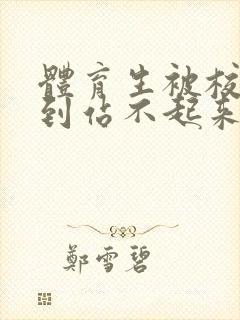 體育生被校
到估不起來
鄭雪碧